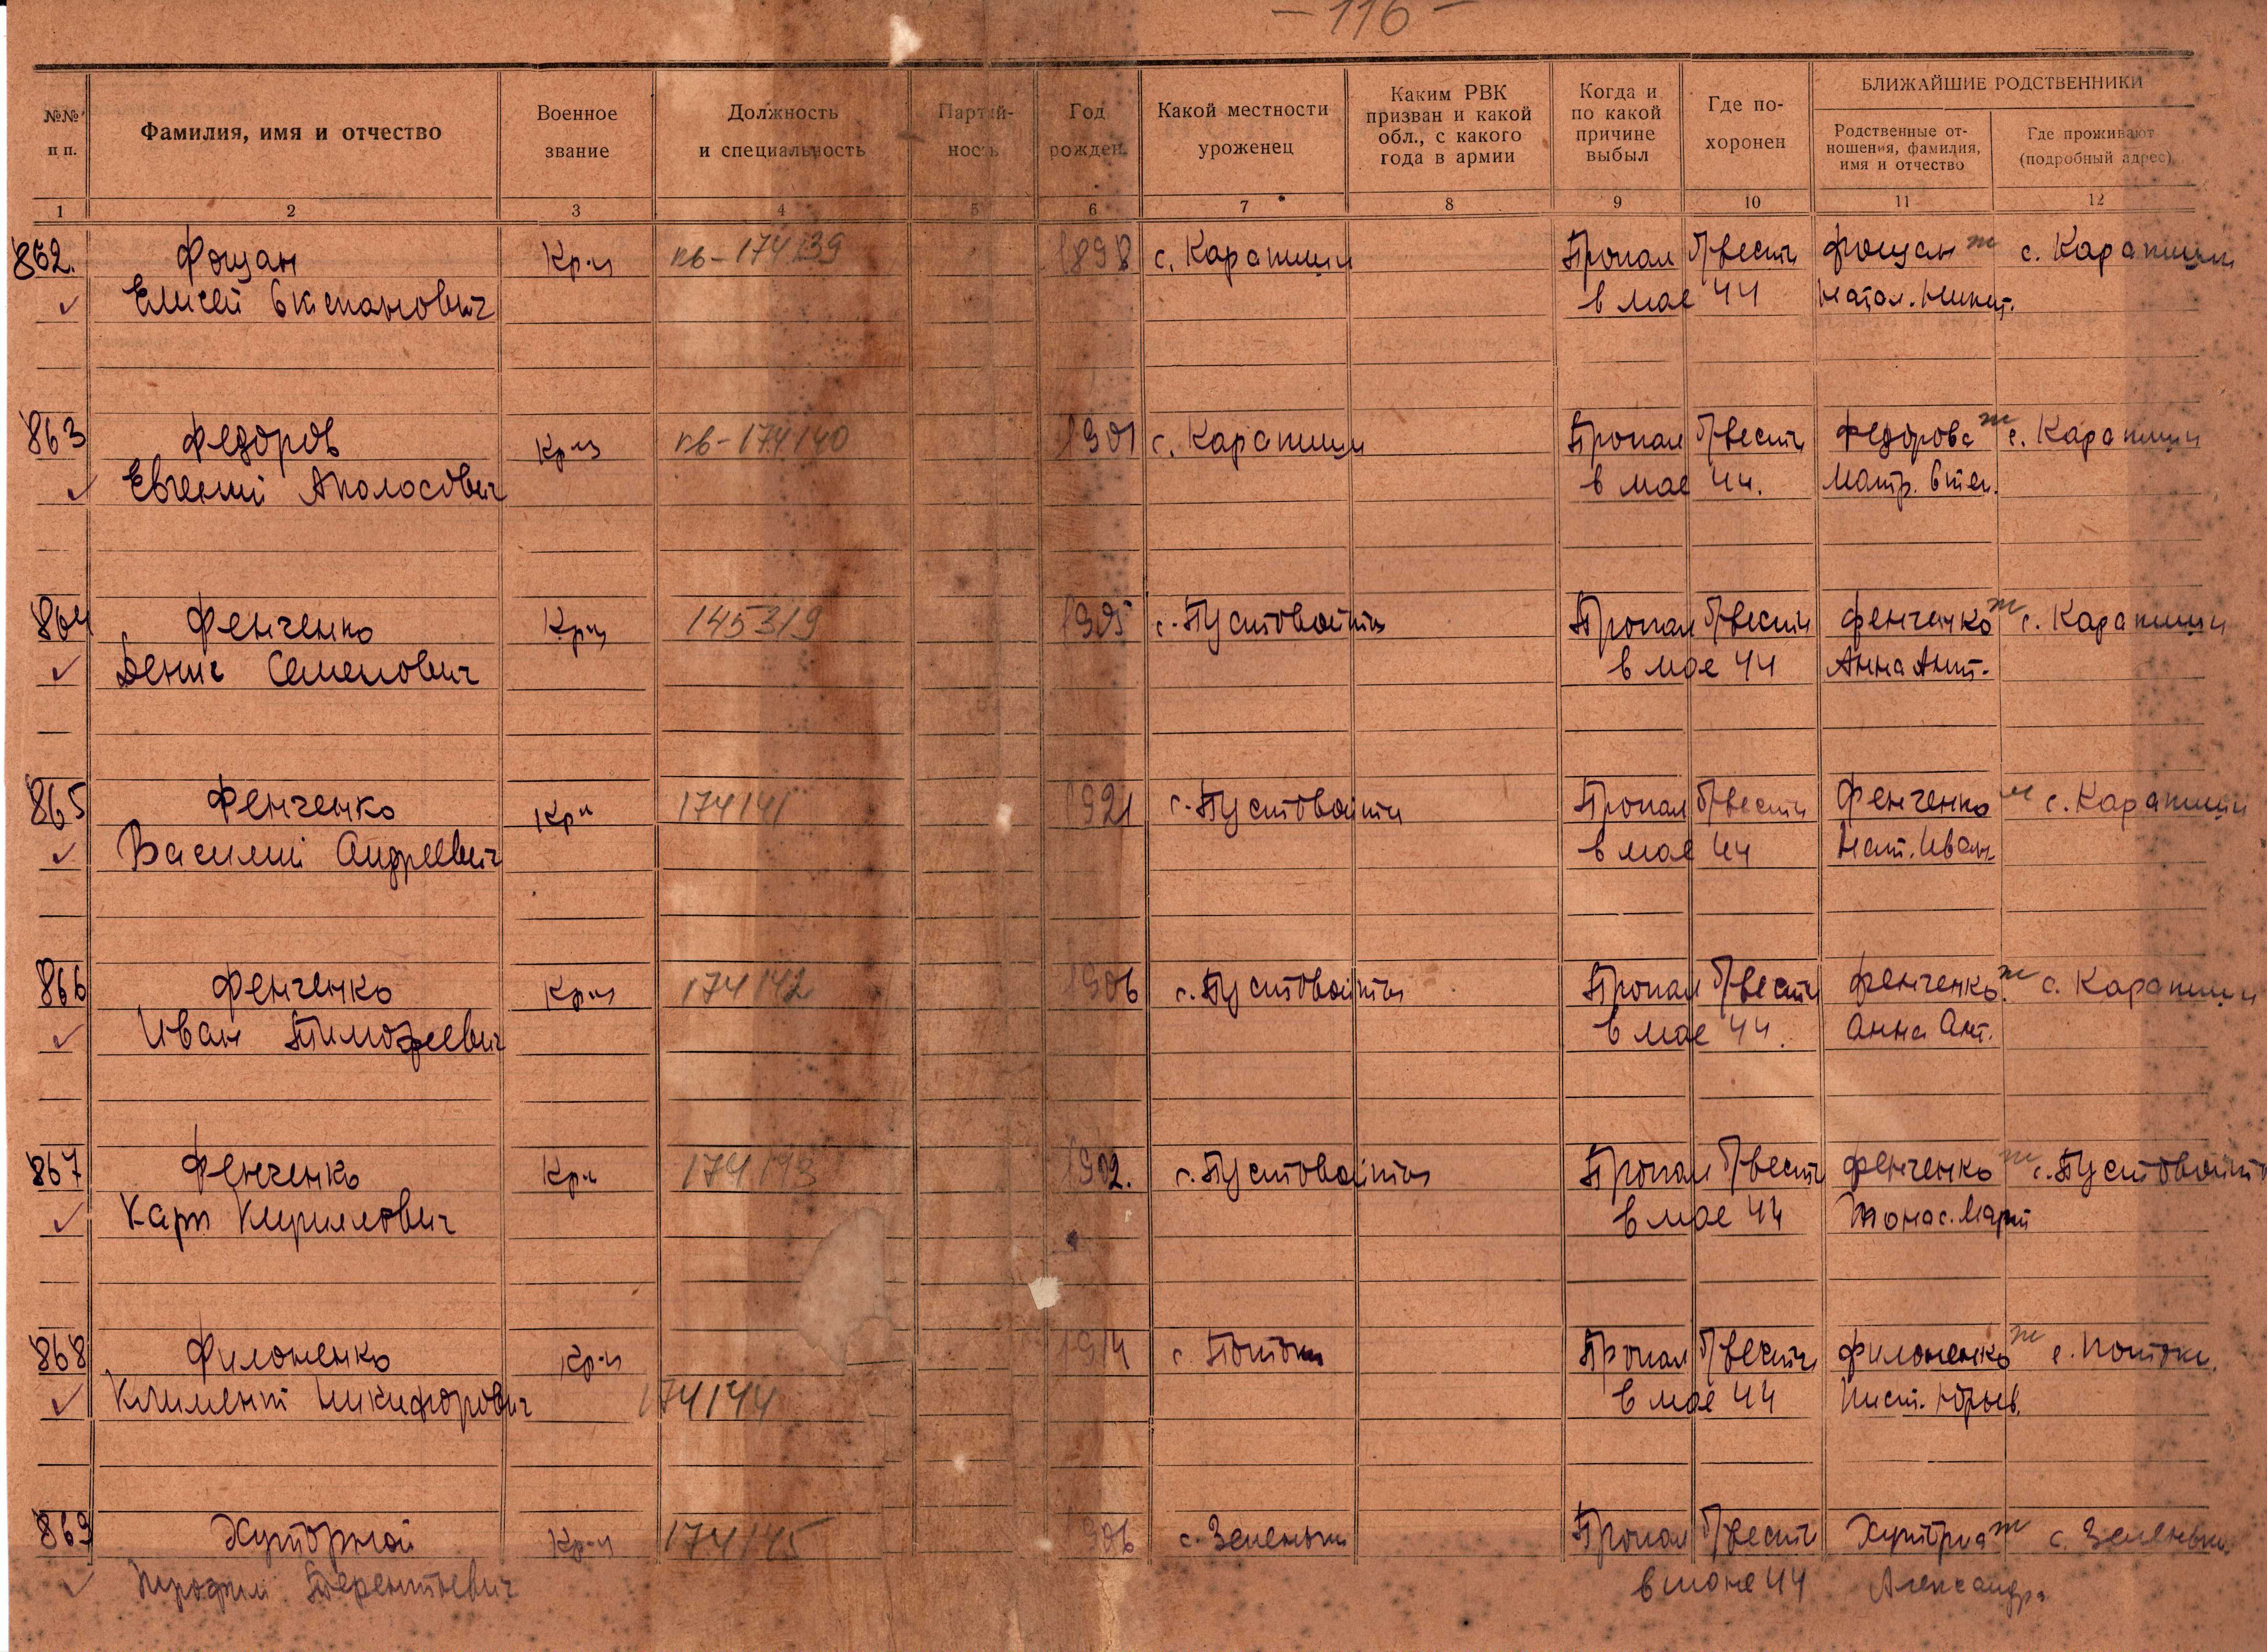 – 116 –
№№ п п.
Фамилия, имя и отчество
Военное звание
Должность и специальность
Партий- ность
Год рожден.
Какой местности уроженец
Каким РВК призван и какой обл., с какого года в армии
Когда и по какой причине выбыл
Где по- хоронен
БЛИЖАЙШИЕ РОДСТВЕННИКИ
Родственные от- ношения, фамилия, имя и отчество
Где проживают (подробный адрес)
1 2 3 4 5 6 7 8 9 10 11 12
862. Фощан Кр-ц кв-174139 1898 с. Карапиши Пропал б/вести Фощан ж с. Карапиши
Елисей в мае 44 Натал. Никит.
863 Федоров Кр-ц кв-174140 1901 с. Карапиши Пропал б/вести Федорова ж с. Карапиши
Евгений Аполосович в мае 44. Матр. Степ.
864 Фенченко Кр-ц 145319 1905 с. Пустовойты Пропал б/вести Фенченко ж с. Карапиши
Денис Семенович в мае 44 Анна Ант.
865 Фенченко Кр-ц 174141 1921 с. Пустовойты Пропал б/вести Фенченко м с. Карапиши
Василий Андреевич в мае 44 Нат. Иван.
866 Фенченко Кр-ц 174142 1906 с. Пустовойты Пропал б/вести Фенченко ж с. Карапиши
Иван Тимофеевич в мае 44. Анна Ант.
867 Фенченко Кр-ц 174143 1902. с. Пустовойты Пропал б/вести Фенченко ж с. Пустовойты
Карп Кириллович в мае 44
868 Филоненко Кр-ц 1914 с. Потоки Пропал б/вести Филоненко ж с. Потоки.
Климент Никифорович 174144 в мае 44
869 Хуторной Кр-ц 174145 906 с. Зеленьки Пропал б/вести Хуторная ж с. Зеленьки
Терентьевич в июне 44 Александра